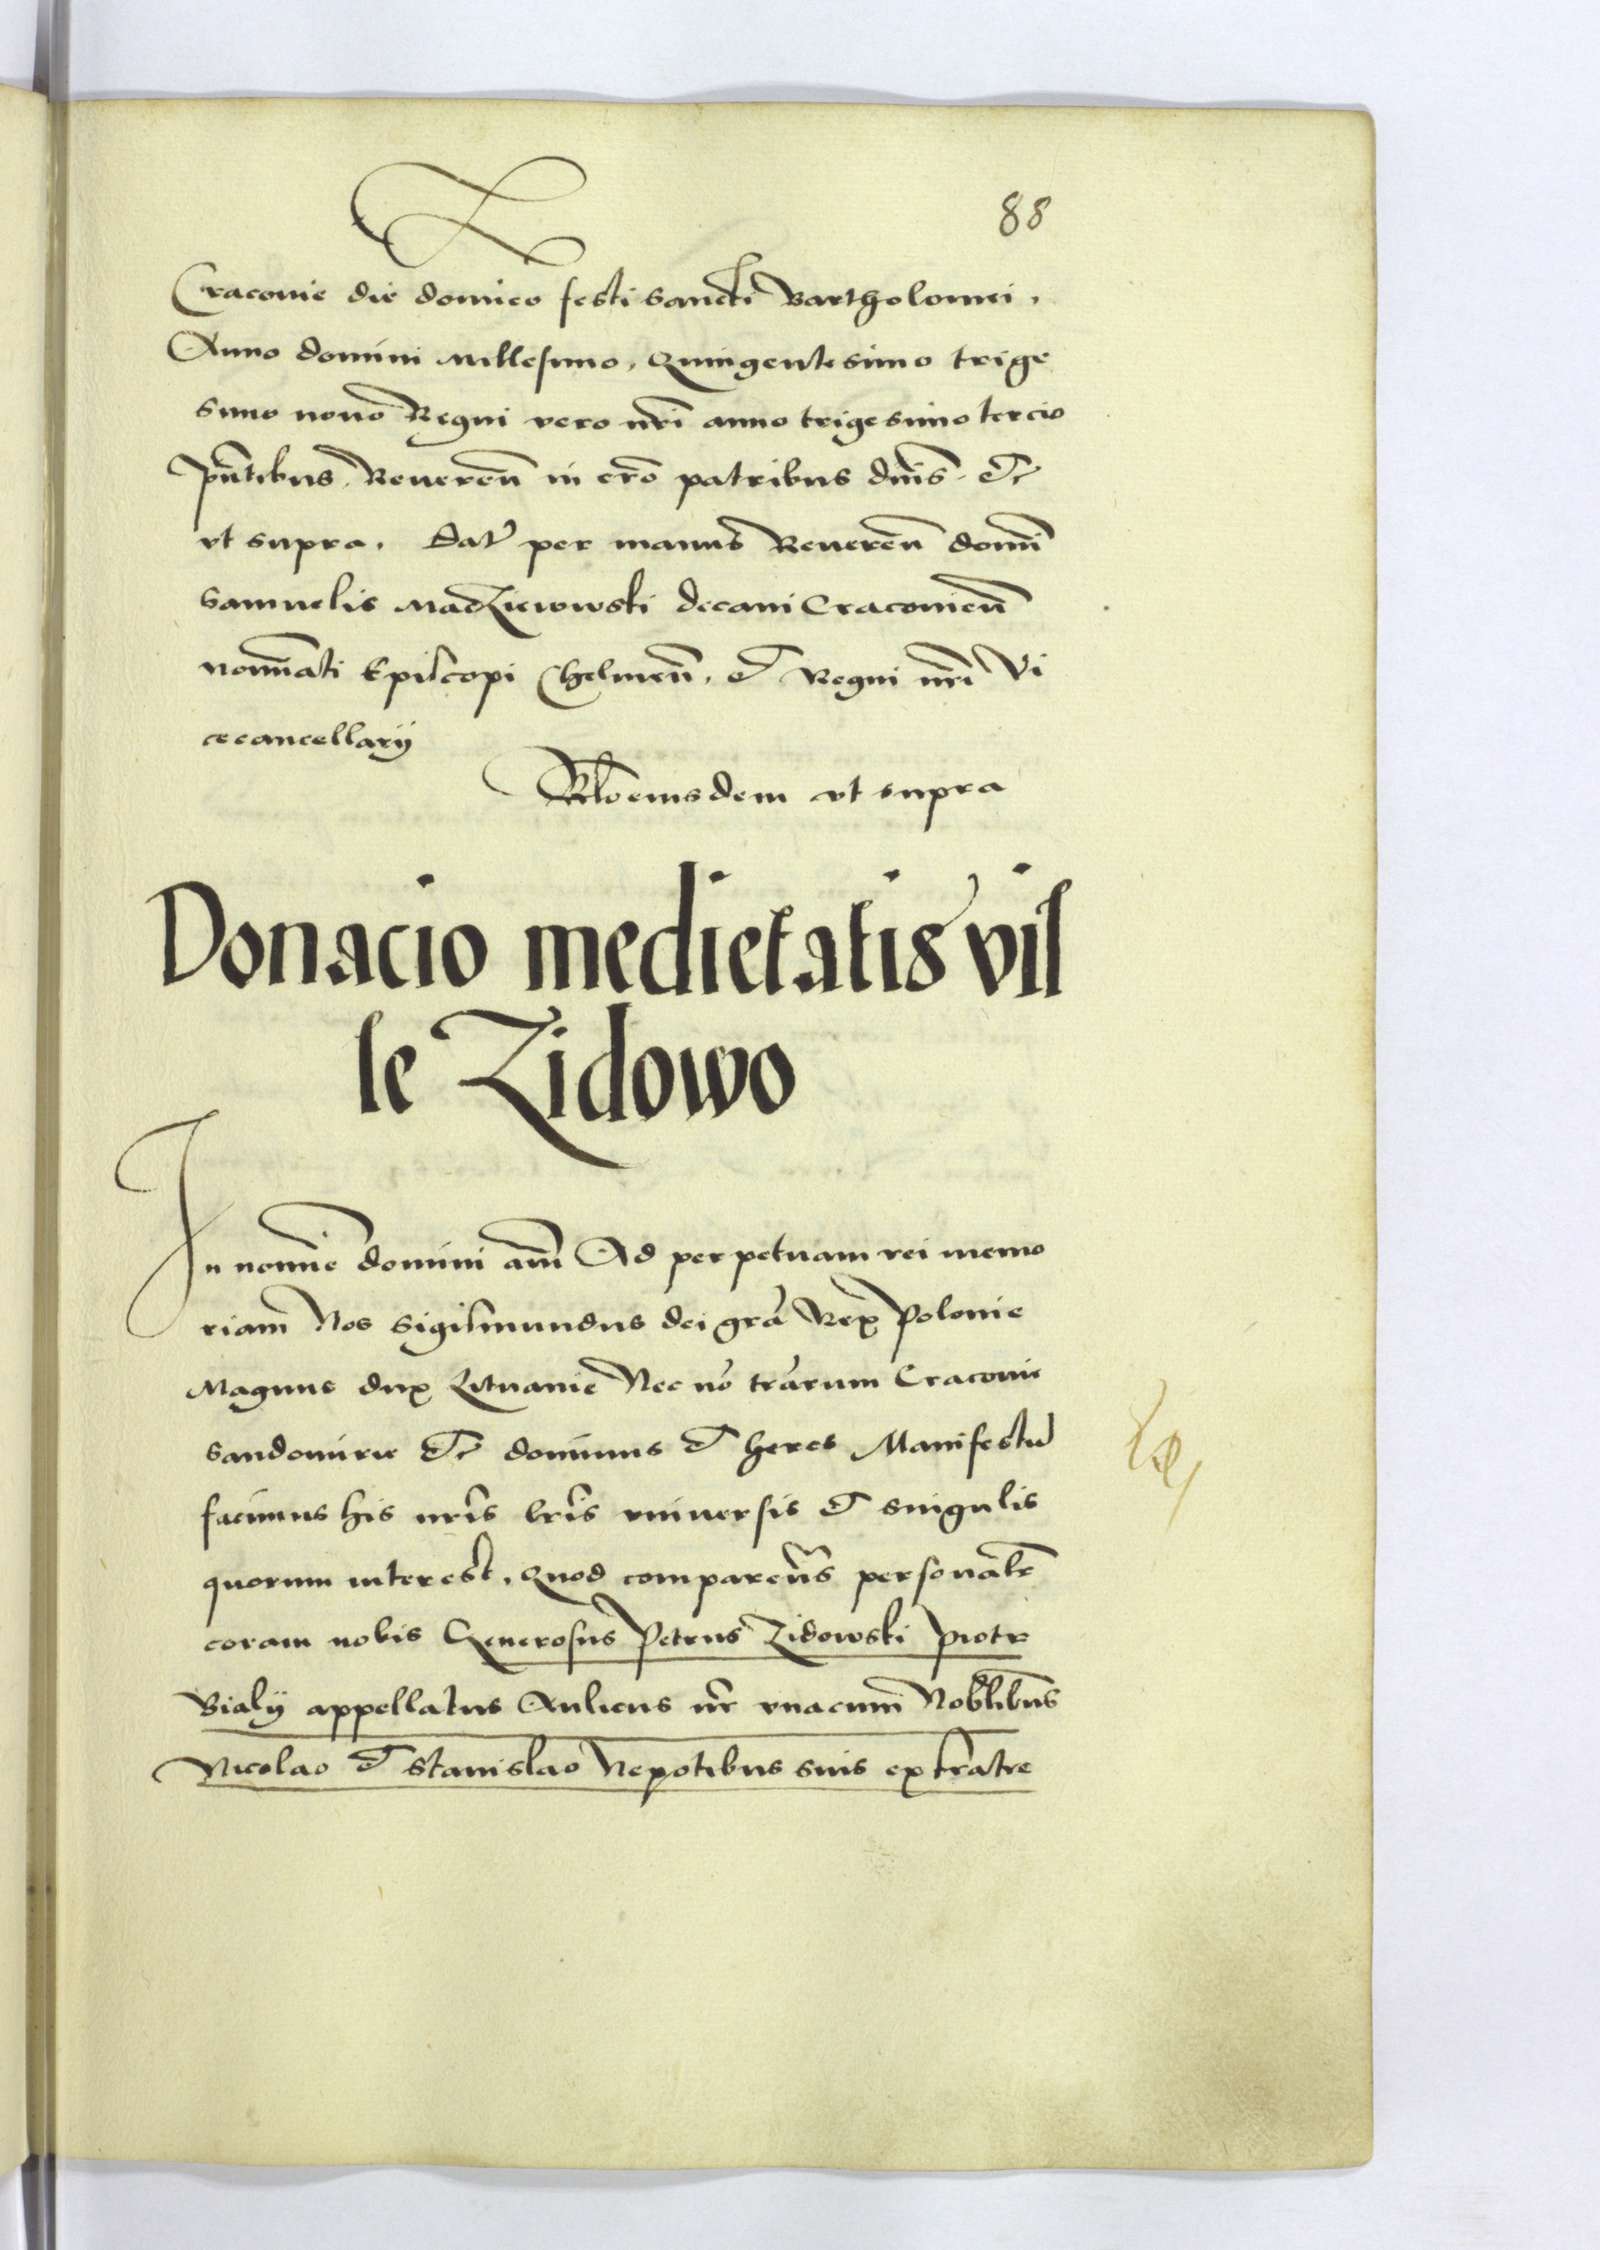 88
Craconie die domīco festi sancti Bartholomei,
Anno domini Millesimo, Quingentesimo trige
simo nono Regni vero nr̄i anno trigesimo tercio
Pn̄tibus Reueren̄ in cr̄o patribus dn̄is etc
vt supra, Dat̄ per manus Reueren̄ domī
Samuelis Madziewowski decani Cracouien̄
nomīati Episcopi Chelmen̄, et Regni nr̄i Vi
cecancellarij
Rl̄o eiusdem vt supra
Donacio medietatis vil
le Zidowo
In nomīe domini am̄ Ad perpetuam rei memo
riam Nos Sigismundus dei grā Rex Polonie
Magnus dux Lituanie Nec nō trārum Cracouie
Sandomirie etc dominus et heres Manifestū
facimus his nr̄is lr̄is vniuersis et singulis
quorum interest, Quod comparen̄s personalr̄
coram nobis Generosus Petrus Zidowski Piotr
Bialy appellatus Aulicus nr̄ vnacum Nobl̄ibus
Nicolao et Stanislao Nepotibus suis ex fratre